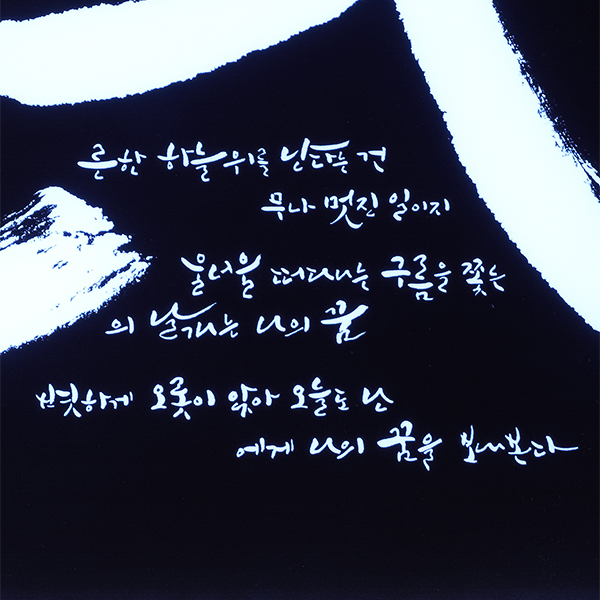 른한 하늘 위를 난다는 건
무나 멋진 일이지
울너울 떠다니는 구름을 쫓는
의 날개는 나의 꿈
오롯이 앉아 오늘도 난
에게 나의 꿈을 보내본다